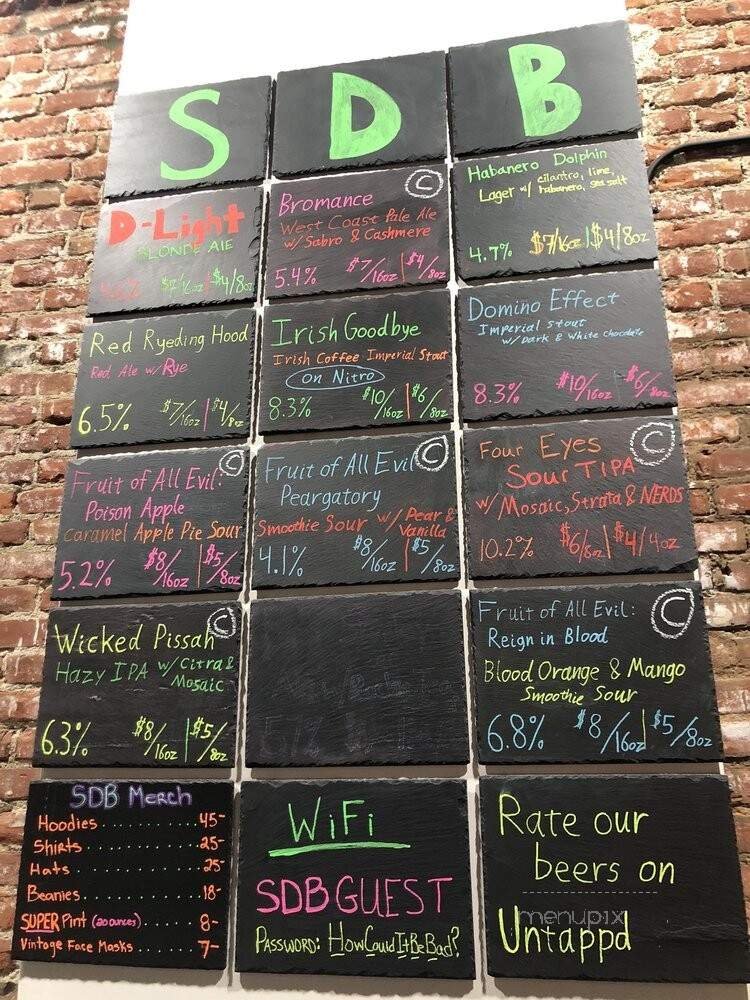 S D B
D-Light
BLONDE ALE
$7/16oz | $4/8oz
Bromance
C
West Coast Pale Ale
w/ Sabro & Cashmere
5.4% $7/16oz | $4/8oz
Habanero Dolphin
Lager w/ cilantro, lime,
habanero, sea salt
4.7% $7/16oz | $4/8oz
Red Ryeding Hood
Red Ale w/ Rye
6.5% $7/16oz | $4/8oz
Irish Goodbye
Irish Coffee Imperial Stout
on Nitro
8.3% $10/16oz | $6/8oz
Domino Effect
Imperial Stout
w/ Dark & White chocolate
8.3% $10/16oz | $6/8oz
Fruit of All Evil:
C
Poison Apple
Caramel Apple Pie Sour
5.2% $8/16oz | $5/8oz
Fruit of All Evil
C
Peargatory
Smoothie Sour w/ Pear &
Vanilla
4.1% $8/16oz | $5/8oz
Four Eyes
C
Sour TIPA
w/ Mosaic, Strata & NERDS
10.2% $6/8oz | $4/4oz
Wicked Pissah
C
Hazy IPA w/ Citra &
Mosaic
6.3% $8/16oz | $5/8oz
Fruit of All Evil:
C
Reign in Blood
Blood Orange & Mango
Smoothie Sour
6.8% $8/16oz | $5/8oz
SDB Merch
Hoodies .......... 45-
Shirts .......... 25-
Hats .......... 25-
Beanies .......... 18-
SUPER Pint (20 ounces) .... 8-
Vintage Face Masks .... 7-
WiFi
SDBGUEST
PASSWORD: HowCouldItBeBad?
Rate our
beers on
Untappd
menupix